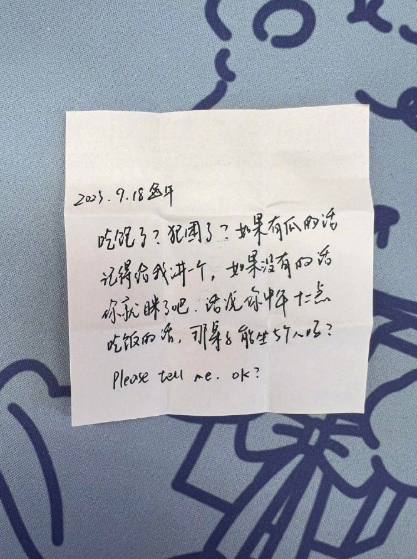 2023.9.18 盒牛
吃饱了？犯困了？如果有瓜的话
记得给我讲一个，如果没有的话
你就眯了吧．话说你中午十二点
吃饭的话，那桌子能坐5个人吗？
Please tell me. ok?